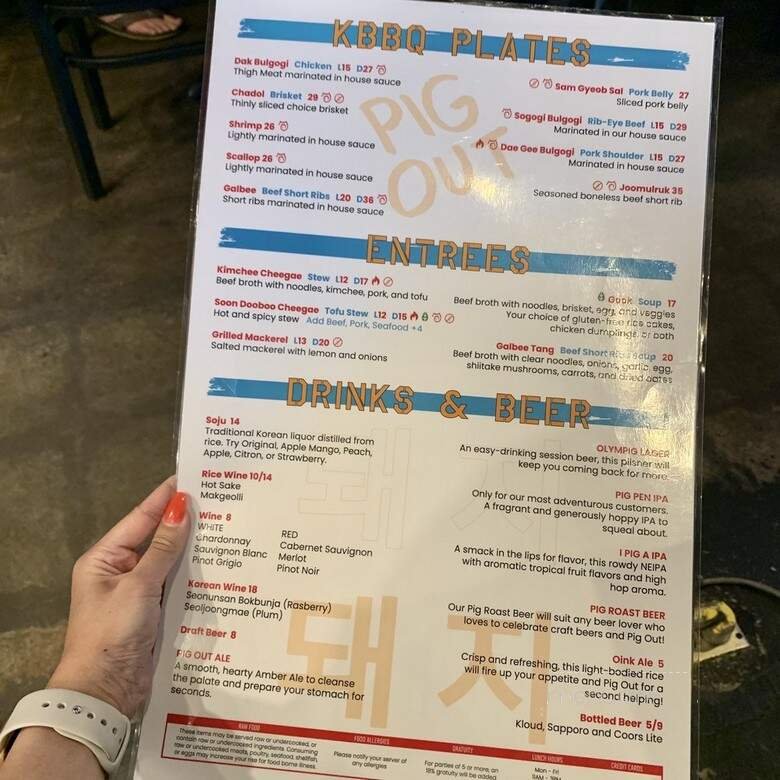 KBBQ PLATES
Dak Bulgogi Chicken L15 D27
Thigh Meat marinated in house sauce
Chadol Brisket 29
Thinly sliced choice brisket
Shrimp 26
Lightly marinated in house sauce
Scallop 26
Lightly marinated in house sauce
Galbee Beef Short Ribs L20 D36
Short ribs marinated in house sauce
PIG
OUT
Sam Gyeob Sal Pork Belly 27
Sliced pork belly
Sogogi Bulgogi Rib-Eye Beef L15 D29
Marinated in our house sauce
Dae Gee Bulgogi Pork Shoulder L15 D27
Marinated in house sauce
Joomulruk 35
Seasoned boneless beef short rib
ENTREES
Kimchee Cheegae Stew L12 D17
Beef broth with noodles, kimchee, pork, and tofu
Soon Dooboo Cheegae Tofu Stew L12 D15
Hot and spicy stew Add Beef, Pork, Seafood +4
Grilled Mackerel L13 D20
Salted mackerel with lemon and onions
Gook Soup 17
Beef broth with noodles, brisket, egg, and veggies
Your choice of gluten-free rice cakes,
chicken dumplings, or both
Galbee Tang Beef Short Ribs Soup 20
Beef broth with clear noodles, onions, garlic, egg,
shiitake mushrooms, carrots, and dried dates
DRINKS & BEER
Soju 14
Traditional Korean liquor distilled from
rice. Try Original, Apple Mango, Peach,
Apple, Citron, or Strawberry.
Rice Wine 10/14
Hot Sake
Makgeolli
Wine 8
WHITE
Chardonnay
Sauvignon Blanc
Pinot Grigio
RED
Cabernet Sauvignon
Merlot
Pinot Noir
Korean Wine 18
Seonunsan Bokbunja (Rasberry)
Seoljoongmae (Plum)
Draft Beer 8
PIG OUT ALE
A smooth, hearty Amber Ale to cleanse
the palate and prepare your stomach for
seconds.
OLYMPIG LAGER
An easy-drinking session beer, this pilsner will
keep you coming back for more.
PIG PEN IPA
Only for our most adventurous customers.
A fragrant and generously hoppy IPA to
squeal about.
I PIG A IPA
A smack in the lips for flavor, this rowdy NEIPA
with aromatic tropical fruit flavors and high
hop aroma.
PIG ROAST BEER
Our Pig Roast Beer will suit any beer lover who
loves to celebrate craft beers and Pig Out!
Oink Ale 5
Crisp and refreshing, this light-bodied rice
will fire up your appetite and Pig Out for a
second helping!
Bottled Beer 5/9
Kloud, Sapporo and Coors Lite
돼지
돼지
RAW FOOD
These items may be served raw or undercooked, or
contain raw or undercooked ingredients. Consuming
raw or undercooked meats, poultry, seafood, shellfish,
or eggs may increase your risk for food borne illness.
FOOD ALLERGIES
Please notify your server of
any allergies
GRATUITY
For parties of 5 or more, an
18% gratuity will be added
LUNCH HOURS
Mon - Fri
CREDIT CARDS